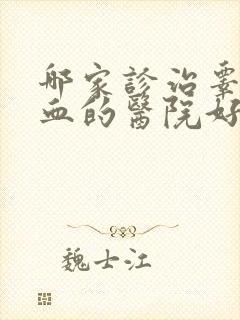 那家診治囊
血的醫院好
魏士江